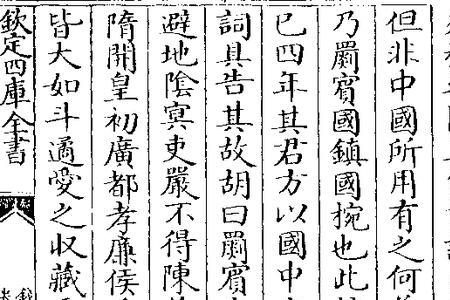 但非中國所用有之何
乃罽賓國鎮國捥也此
已四年其君方以國中
詞具告其故胡曰罽賓
避地陰㝠吏嚴不得陳
隋開皇初廣都孝廉侯
皆大如斗遹愛之収藏
欽定四庫全書